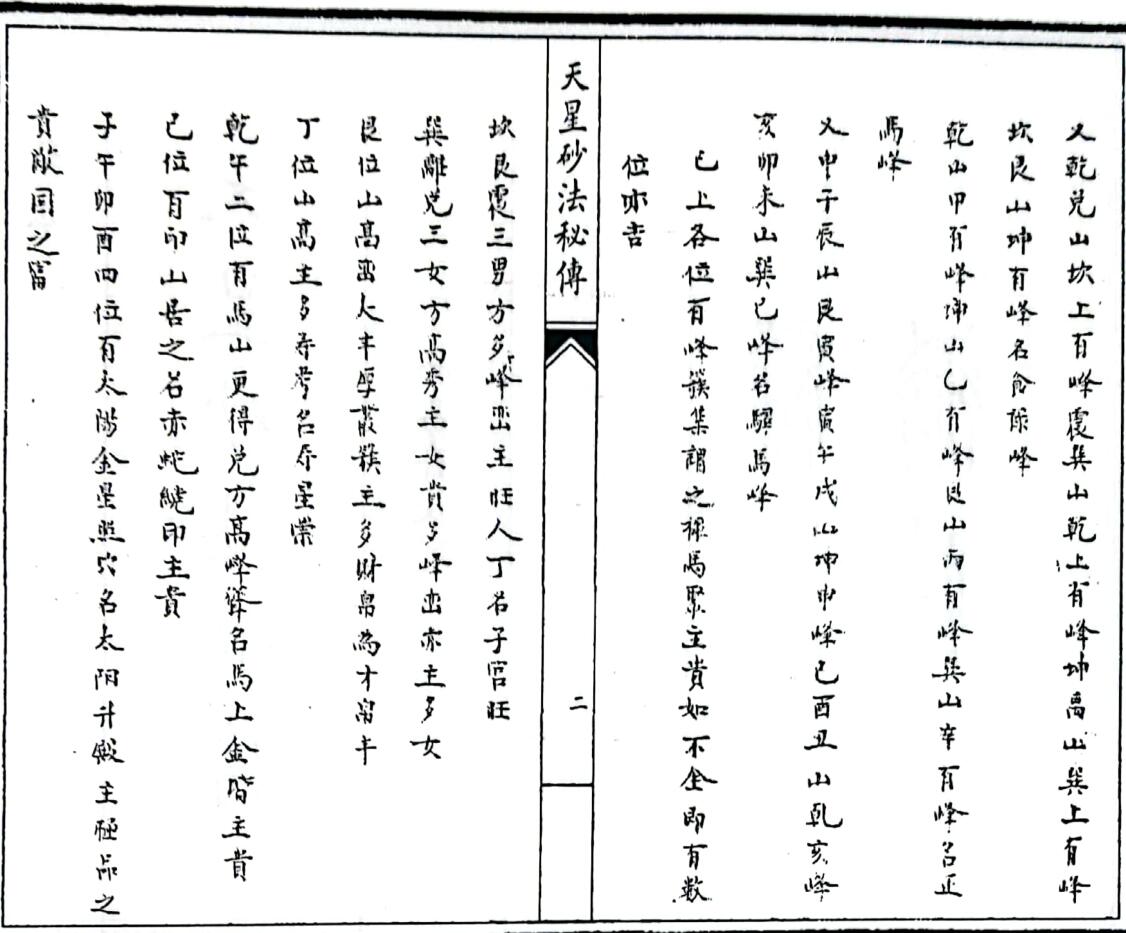 又乾兌山坎上有峰震巽山乾上有峰坤离山巽上有峰
坎艮山坤有峰名食祿峰
乾山甲有峰坤山乙有峰艮山丙有峰巽山辛有峰名正
馬峰
又申子辰山艮寅峰寅午戌山坤申峰巳酉丑山乾亥峰
亥卯未山巽巳峰名驛馬峰
已上各位有峰簇集謂之祿馬聚主貴如不全即有数
位亦吉
天星砂法秘傳
二
坎艮震三男方多峰巒主旺人丁名子宮旺
巽離兌三女方高秀主女貴多峰巒亦主多女
艮位山高巒大丰厚叢簇主多財帛為才帛丰
丁位山高主多寿考名寿星崇
乾午二位有馬山更得兌方高峰聳名馬上金階主貴
巳位有印山居之名赤蛇繞印主貴
子午卯酉四位有太陽金星照穴名太阳升殿主極品之
貴敵囯之富